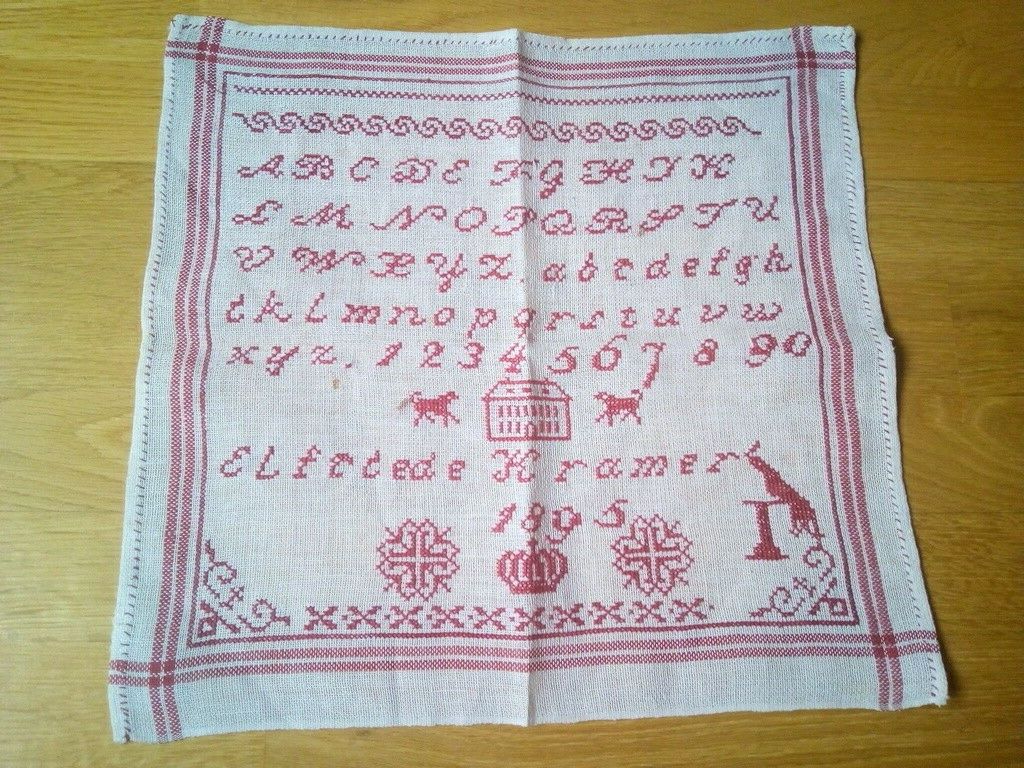 A B C D E F G H I K
L M N O P Q R S T U
V W X Y Z . a b c d e f g h
i k l m n o p q r s t u v w
x y z . 1 2 3 4 5 6 7 8 9 0
Elfriede Kramer
1895